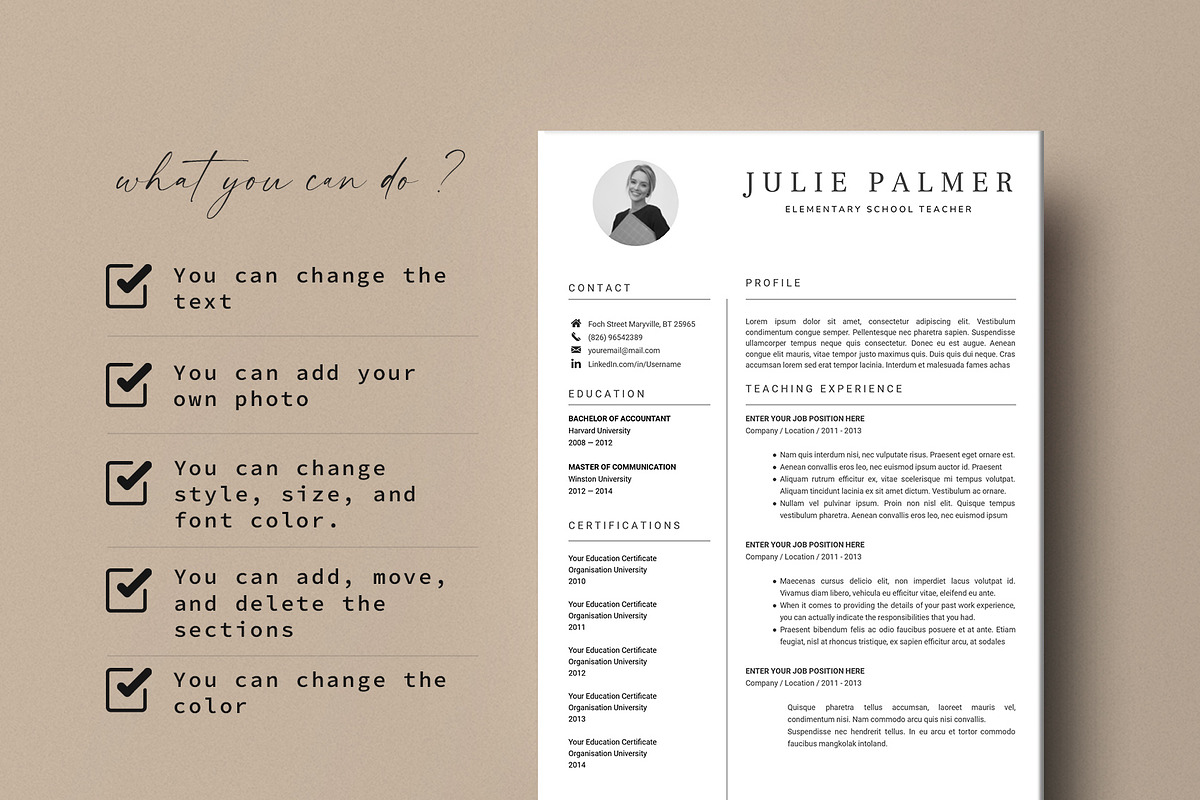 what you can do ?
You can change the
text
You can add your
own photo
You can change
style, size, and
font color.
You can add, move,
and delete the
sections
You can change the
color
JULIE PALMER
ELEMENTARY SCHOOL TEACHER
CONTACT
Foch Street Maryville, BT 25965
(826) 96542389
youremail@mail.com
LinkedIn.com/in/Username
EDUCATION
BACHELOR OF ACCOUNTANT
Harvard University
2008 – 2012
MASTER OF COMMUNICATION
Winston University
2012 – 2014
CERTIFICATIONS
Your Education Certificate
Organisation University
2010
Your Education Certificate
Organisation University
2011
Your Education Certificate
Organisation University
2012
Your Education Certificate
Organisation University
2013
Your Education Certificate
Organisation University
2014
PROFILE
Lorem ipsum dolor sit amet, consectetur adipiscing elit. Vestibulum
condimentum congue semper. Pellentesque nec pharetra sapien. Suspendisse
ullamcorper tempus neque quis consectetur. Donec eu est augue. Aenean
congue elit mauris, vitae tempor justo maximus quis. Duis quis dui neque. Cras
accumsan lorem sed erat tempor lacinia. Interdum et malesuada fames achas
TEACHING EXPERIENCE
ENTER YOUR JOB POSITION HERE
Company / Location / 2011 - 2013
● Nam quis interdum nisi, nec vulputate risus. Praesent eget ornare est.
● Aenean convallis eros leo, nec euismod ipsum auctor id. Praesent
● Aliquam rutrum efficitur ex, vitae scelerisque mi tempus volutpat.
Aliquam tincidunt lacinia ex sit amet dictum. Vestibulum ac ornare.
● Nullam vel pulvinar ipsum. Proin non nisl elit. Quisque tempus
vestibulum pharetra. Aenean convallis eros leo, nec euismod ipsum
ENTER YOUR JOB POSITION HERE
Company / Location / 2011 - 2013
● Maecenas cursus delicio elit, non imperdiet lacus volutpat id.
Vivamus diam libero, vehicula eu efficitur vitae, eleifend eu ante.
● When it comes to providing the details of your past work experience,
you can actually indicate the responsibilities that you had.
● Praesent bibendum felis ac odio faucibus posuere et at ante. Etiam
feugiat, nisl at rhoncus tristique, ex sapien efficitur arcu, at sodales
ENTER YOUR JOB POSITION HERE
Company / Location / 2011 - 2013
Quisque pharetra tellus accumsan, laoreet mauris vel,
condimentum nisi. Nam commodo arcu quis nisi convallis.
Suspendisse nec hendrerit tellus. In eu arcu et tortor commodo
faucibus mangkolak intoland.